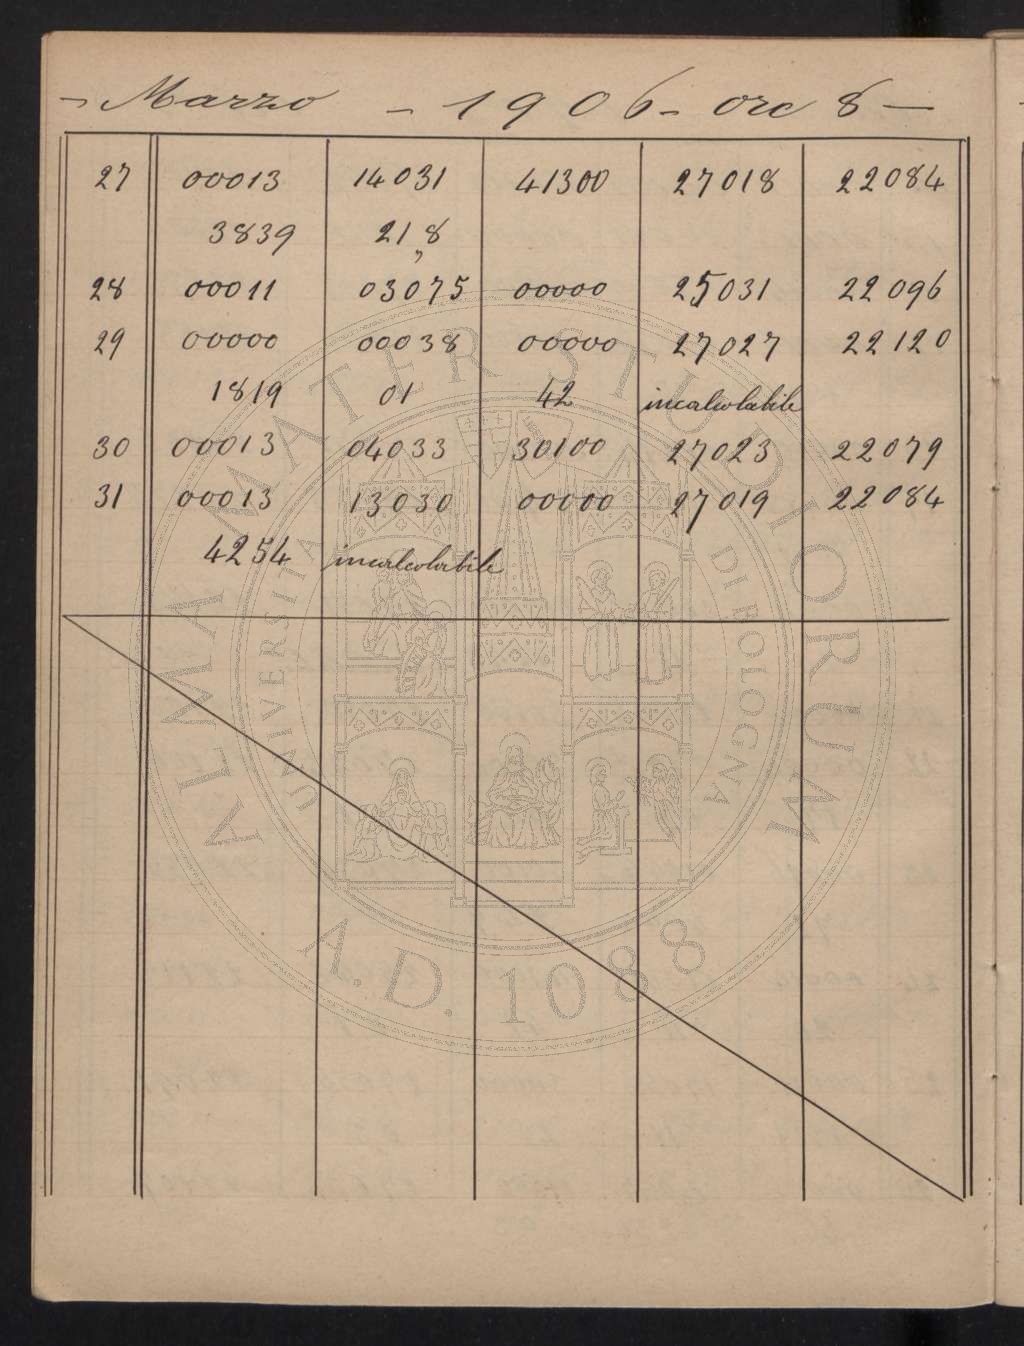 - Marzo - 1906 - ore 8 -
27 00013 14031 41300 27018 22084
3839 21,8
28 00011 03075 00000 25031 22096
29 00000 00038 00000 27027 22120
1819 01 42 incalcolabile
30 00013 04033 30100 27023 22079
31 00013 13030 00000 27019 22084
4254 incalcolabile
ALMA MATER STUDIORUM
UNIVERSITÀ DI BOLOGNA
A.D. 1088